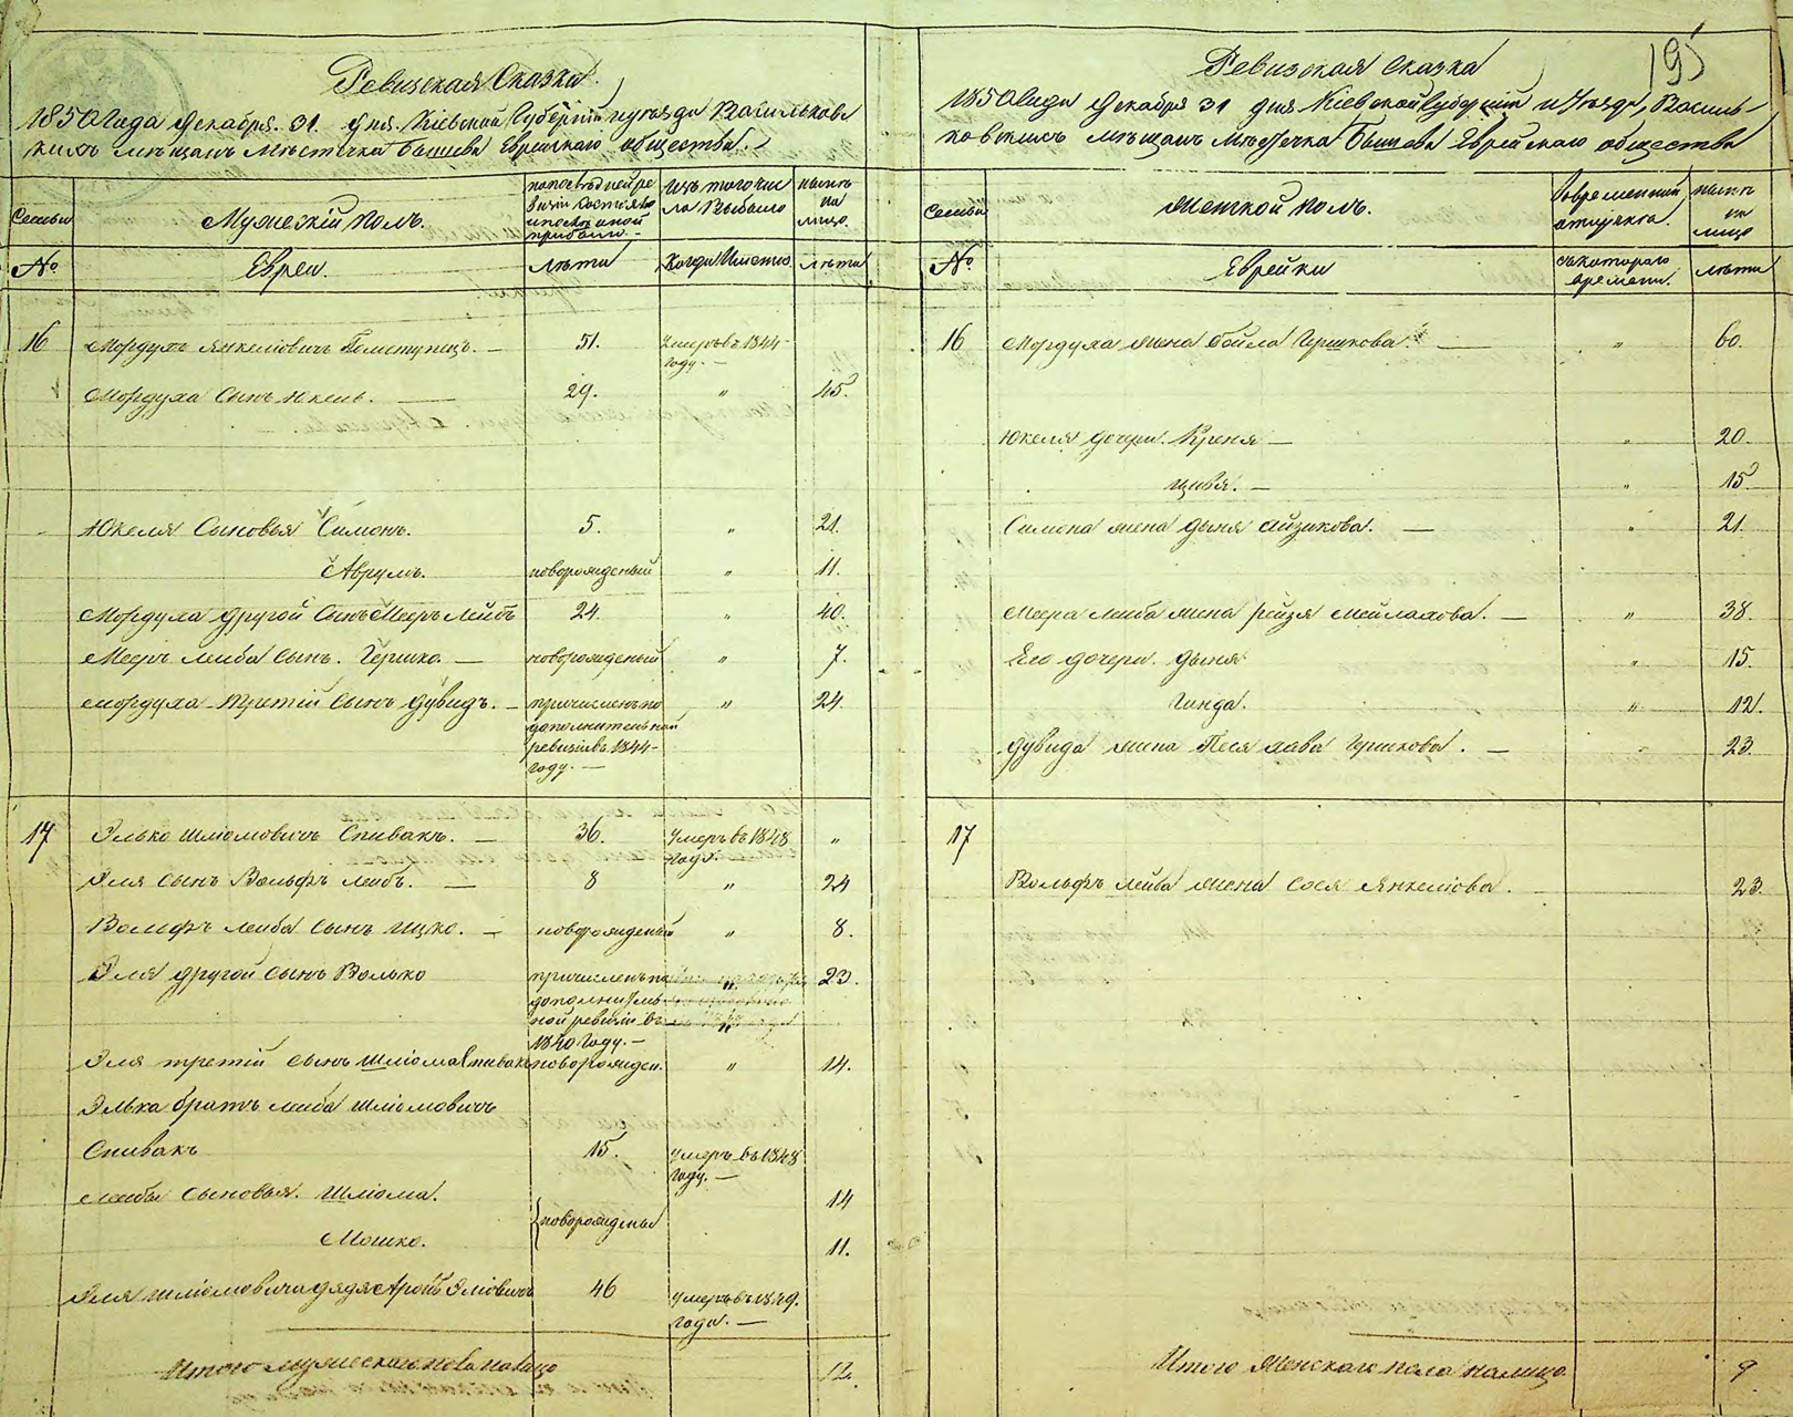 Ревизская Сказка.
1850 Года Декабря 31 дня Кіевской Губерніи и уезда Васильков
скихъ мещанъ Местечка Бышева Еврейскаго общества.
Семьи
Мужескій полъ.
по последней ре
визіи состояло
и после оной
прибыло.
Изъ того чис
ла Выбыло
ныне
на
лицо.
№
Евреи.
лета
Когда Именно
лета
16 Мордухъ Янкеліовичъ 51. Умеръ въ 1844
году.
Мордуха Сынъ Юкель. 29. " 45.
Юкеля Сыновья Симонъ. 5. " 21.
Аврумъ. новорожденый " 11.
Мордуха другой Сынъ Мееръ Лейбъ 24. " 40.
Мееръ лейба Сынъ. Гершко. новорожденый " 7.
Мордуха третій Сынъ Дувидъ. причисленъ по " 24.
дополнительной
ревизіи въ 1844
году.
17 Элько Шліомовичъ Спивакъ. 36. умеръ въ 1848 "
года.
Эля Сынъ Вольфъ лейбъ. 8 " 24
Вольфъ лейба Сынъ Ицко. новорожденый " 8.
Эля другой Сынъ Волько причисленъ по " 23.
дополнитель
ной ревизіи въ "
1840 году.
Эля третій сынъ Шліома Спивакъ новорожден. " 14.
Элька братъ лейба Шліомовичъ
Спивакъ 15. умеръ въ 1848
году.
лейбы Сыновья. Шліома. 14
новорожденые
Мошко. 11.
Эля Шліомовича дядя Аронъ Эліовичъ 46 умеръ въ 1849.
года.
Итого мужескаго пола на лицо 12.
Ревизская Сказка
19
1850 Года Декабря 31 дня Кіевской Губерніи и Уезда, Василь
ковскихъ мещанъ Местечка Бышева Еврейскаго общества
Семьи
Женской полъ.
Во временной
отлучке.
ныне
на
лицо
№
Еврейки
съ котораго
времени.
лета
16 Мордуха жена Бойла Гершкова. " 60.
Юкеля дочери. Крейня " 20.
Цивя. " 15
Симона жена Дыня Айзикова. " 21.
Меера лейба жена Рейзя Мейлахова. " 38.
Его дочери. Дыня " 15.
Гинда. " 12.
Дувида жена Песя хава Гершкова. " 23.
17
Вольфъ лейба жена Сося Янкеліова. 23.
Итого Женскаго пола на лицо. 9